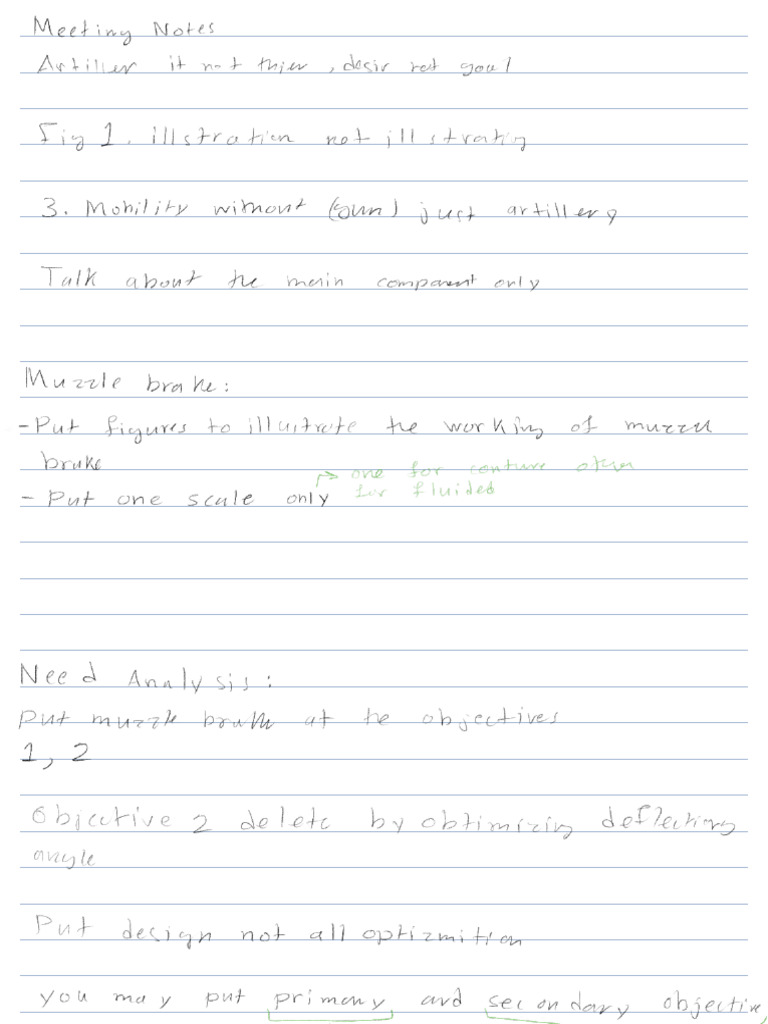 Meeting Notes
Artiller it not thier, desir not goal
Fig 1. illstration not illstrating
3. Mobility without (gun) just artillery
Talk about the main component only
Muzzle brake:
-Put figures to illustrate the working of muzzle
brake
one for conture other
- Put one scale only for fluided
Need Analysis:
Put muzzle brake at the objectives
1, 2
Objective 2 delete by obtimizing deflecting
angle
Put design not all optizmition
you may put primary and secondary objective,